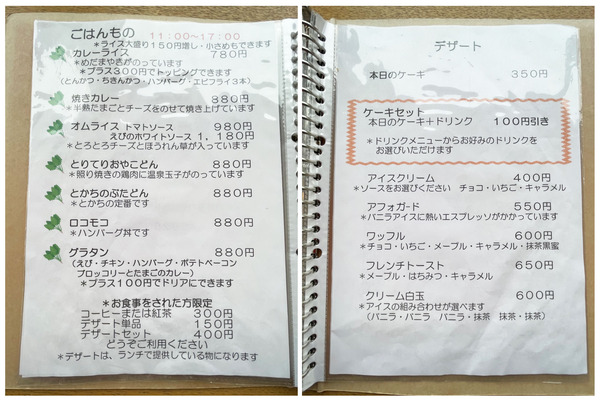 ごはんもの　11:00〜17:00
＊ライス大盛り150円増し・小さめもできます
カレーライス　780円
＊めだまやきがのっています
＊プラス300円でトッピングできます
（とんかつ・ちきんかつ・ハンバーグ・エビフライ3本）
焼きカレー　880円
＊半熟たまごとチーズをのせて焼き上げています
オムライス トマトソース　980円
えびのホワイトソース 1,180円
＊とろとろチーズとほうれん草が入っています
とりてりおやこどん　880円
＊照り焼きの鶏肉に温泉玉子がのっています
とかちのぶたどん　880円
＊とかちの定番です
ロコモコ　880円
＊ハンバーグ丼です
グラタン　880円
（えび・チキン・ハンバーグ・ポテトベーコン
ブロッコリーとたまごのカレー）
＊プラス100円でドリアにできます
＊お食事をされた方限定
コーヒーまたは紅茶　300円
デザート単品　150円
デザートセット　400円
どうぞご利用ください
＊デザートは、ランチで提供している物になります
デザート
本日のケーキ　350円
ケーキセット
本日のケーキ＋ドリンク　100円引き
＊ドリンクメニューからお好みのドリンクを
お選びいただけます
アイスクリーム　400円
＊ソースをお選びください　チョコ・いちご・キャラメル
アフォガード　550円
＊バニラアイスに熱いエスプレッソがかかっています
ワッフル　600円
＊チョコ・いちご・メープル・キャラメル・抹茶黒蜜
フレンチトースト　650円
＊メープル・はちみつ・キャラメル
クリーム白玉　600円
＊アイスの組み合わせが選べます
（バニラ・バニラ　バニラ・抹茶　抹茶・抹茶）